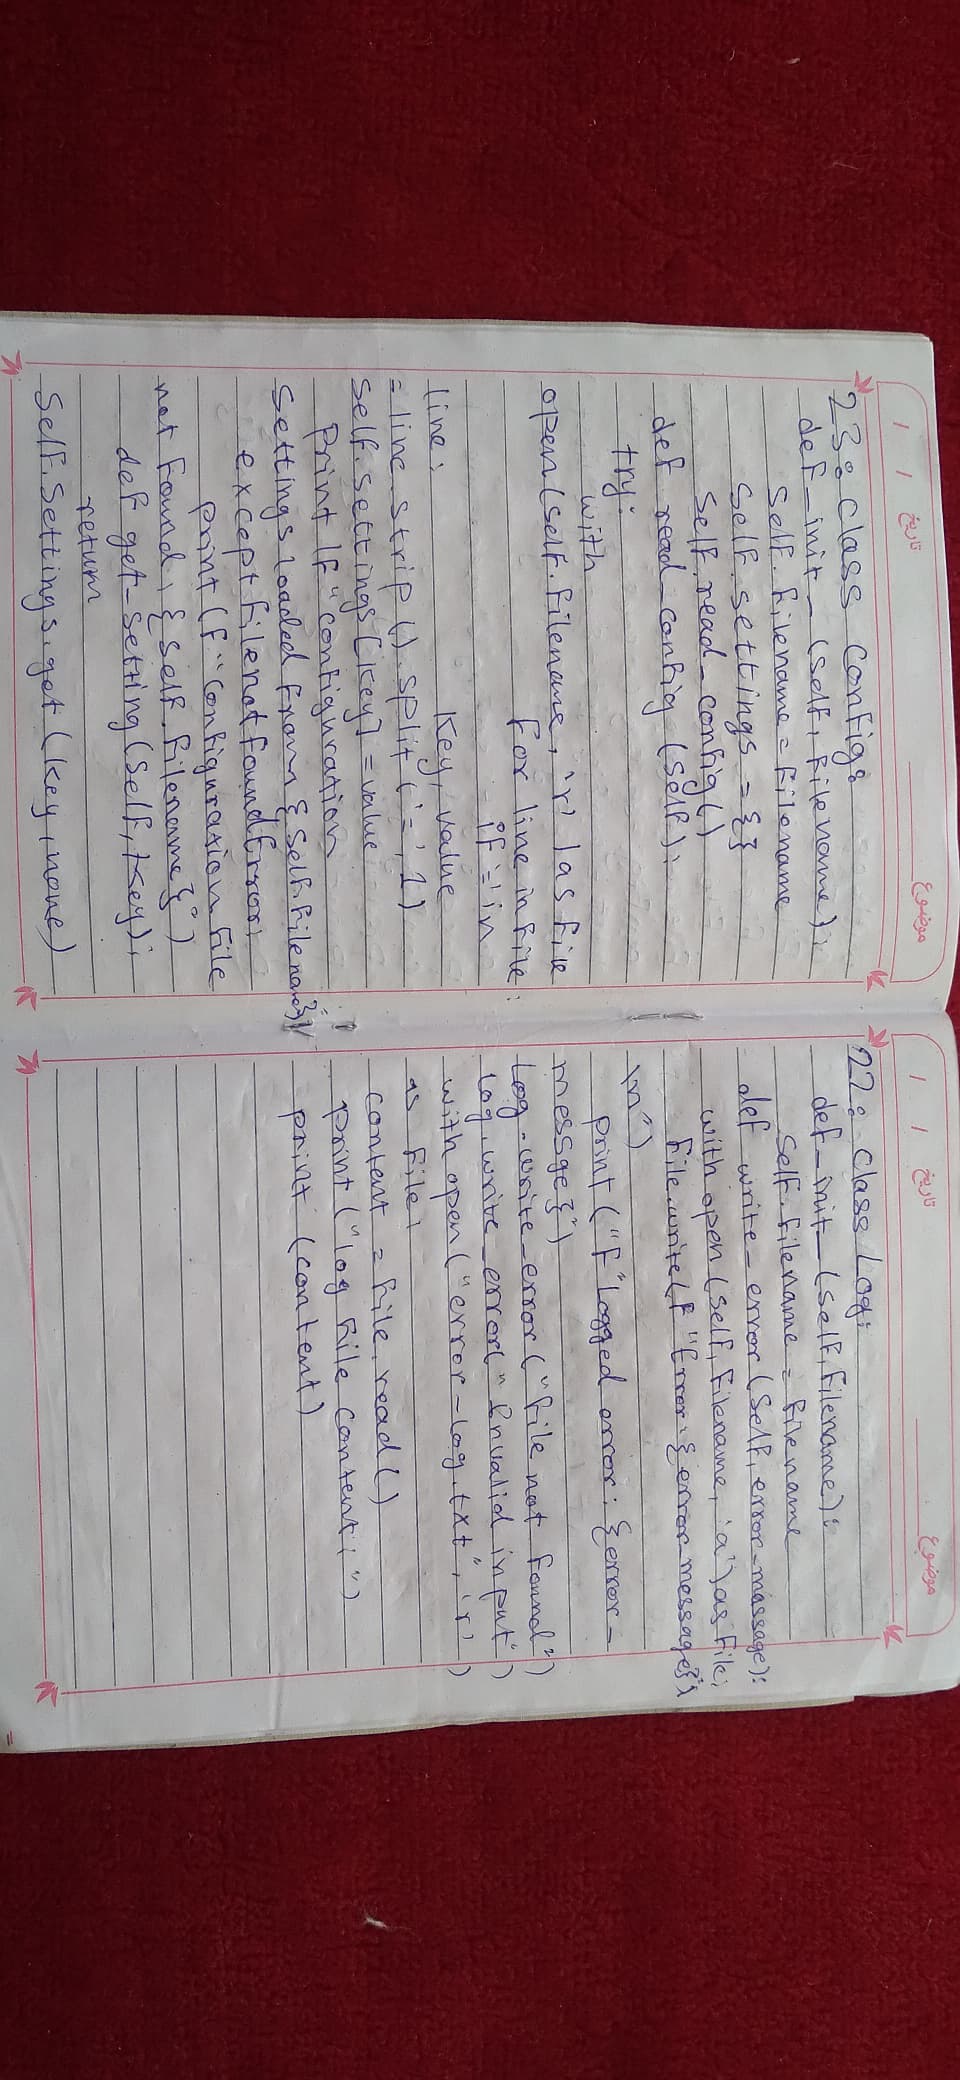 موضوع
تاریخ / /
23: class config:
def_init_(self, filename):
self.filename = filename
self.settings = {}
self.read_config()
def read_config(self):
try:
with
open(self.filename, 'r') as file
for line in file:
if '=' in
line:
key, value
= line.strip().split('=', 1)
self.settings[key] = value
print(f"configuration
settings loaded from {self.filename}")
except filenotfoundError:
print(f"configuration file
not found, {self.filename}")
def get_setting(self, key):
return
self.settings.get(key, none)
موضوع
تاریخ / /
22: class Log:
def_init_(self, filename):
self.filename = filename
def write_error(self, error_massage):
with open(self, filename, 'a') as file:
file.write(f "Error: {error message}")
\n")
print("f"logged error: {error_
messge}")
log.write_error("file not found")
log.write_error("Invalid input")
with open("error_log.txt", 'r')
as file:
content = file.read()
print("log file content:")
print (content)